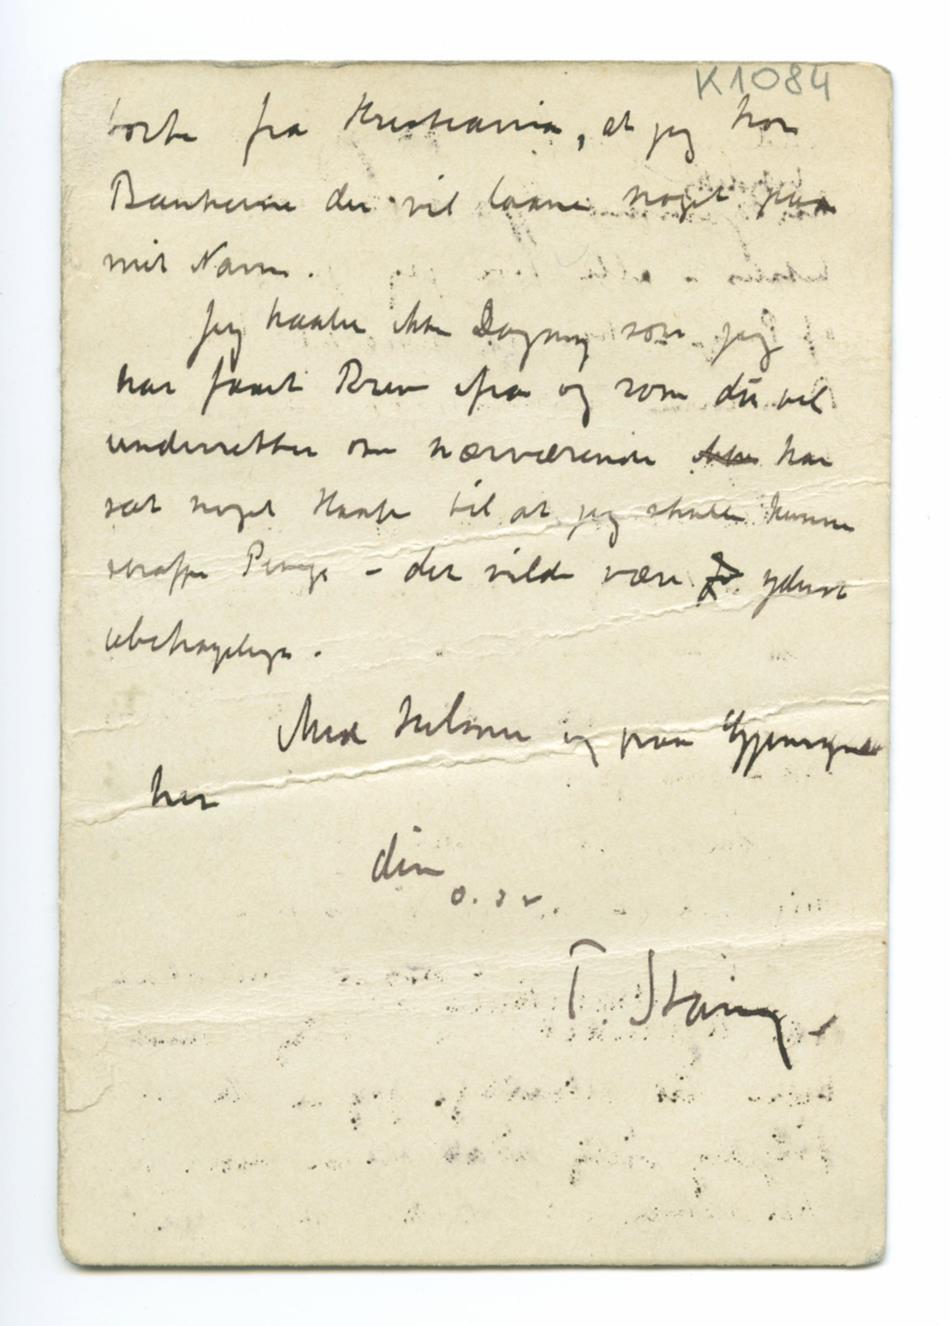 K1084
borte fra Kristiania, at jeg tror
Bankerne der vil laane noget paa
mit Navn.
Jeg haaber ikke Dagny som jeg
har faaet Brev ifra og som du vel
underretter om nærværende har
sat noget Haab til at jeg skulde kunne
skaffe Penge – det vilde være yderst
ubehageligt.
Med Hilsener og paa Gjensyn
her
din
T. Stang